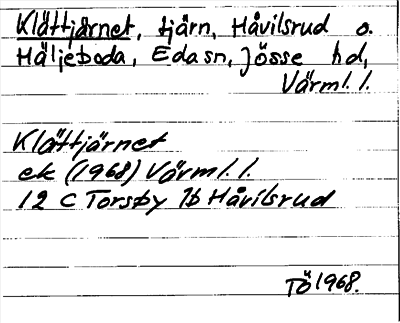 Klättjärnet, tjärn, Håvilsrud o.
Häljeboda, Eda sn, Jösse hd,
Värml. l.
Klättjärnet
ek (1968) Värml. l.
12 C Torsby 7b Håvilsrud
Tö 1968.